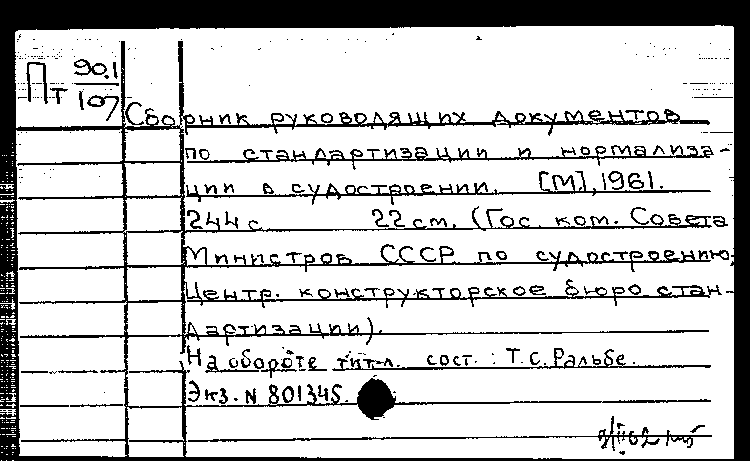 Пт 90.1/107
Сборник руководящих документов
по стандартизации и нормализа-
ции в судостроении. [М], 1961.
244 с. 22 см. (Гос. ком. Совета
Министров СССР по судостроению,
Центр. конструкторское бюро стан-
дартизации).
На обороте тит. л. сост.: Т.С. Ральбе.
Экз. N 801345.